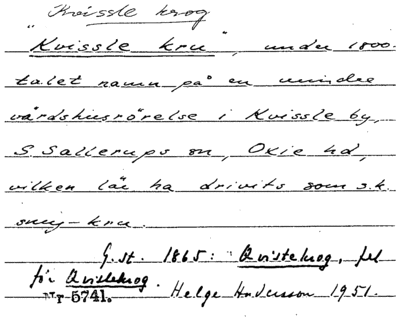 Kvissle krog
"Kvissle kru", under 1800-
talet namn på en mindre
värdshusrörelse i Kvissle by,
S. Sallerups sn, Oxie hd,
vilken lär ha drivits som s.k.
smyg-kru.
G.st. 1865: Qvistekrog, fel
för Qvislekrog.
Nr 5741. Helge Andersson 1951.